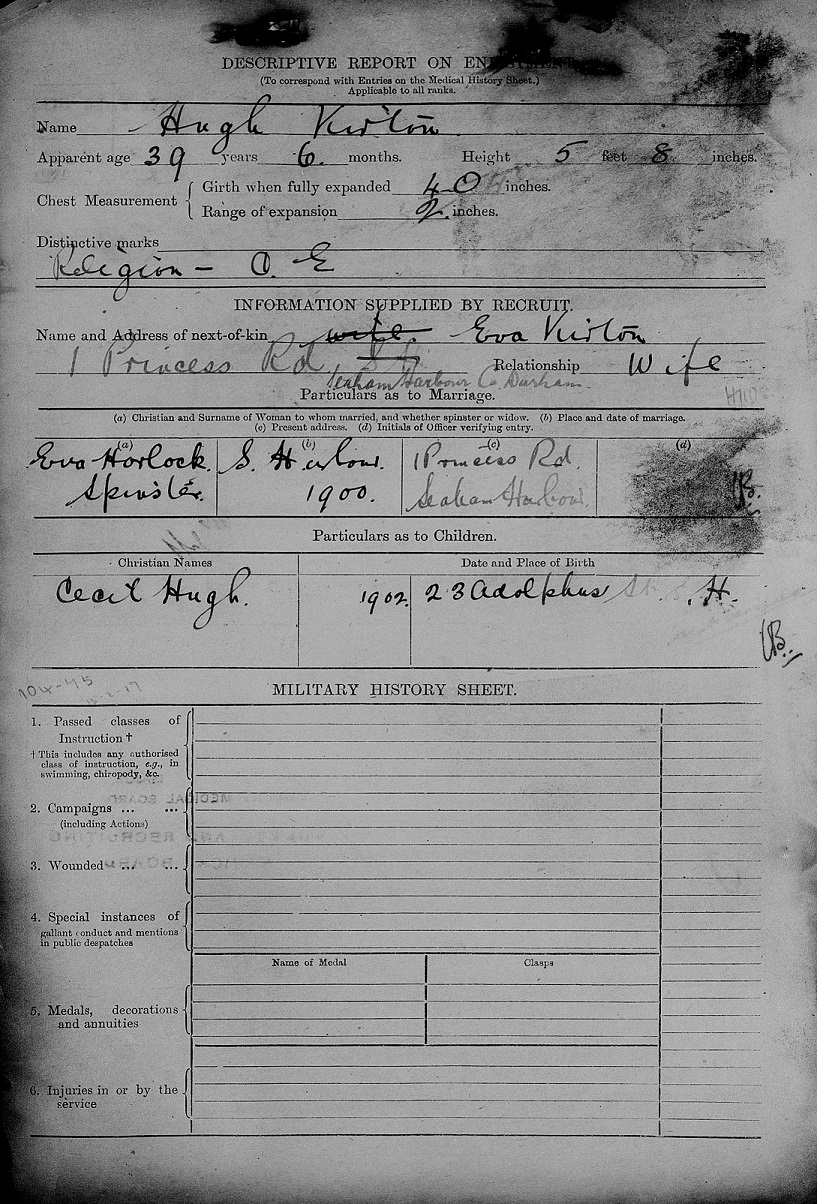 DESCRIPTIVE REPORT ON
(To correspond with Entries on the Medical History Sheet.)
Applicable to all ranks.
Name Hugh Kirton
Apparent age 39 years 6 months. Height 5 feet 8 inches.
Chest Measurement { Girth when fully expanded 40 inches.
Range of expansion 2 inches.
Distinctive marks
Religion - C. E
INFORMATION SUPPLIED BY RECRUIT.
Name and Address of next-of-kin wife. Eva Kirton
1 Princess Rd Relationship Wife
Seaham Harbour Co. Durham.
Particulars as to Marriage.
(a) Christian and Surname of Woman to whom married, and whether spinster or widow. (b) Place and date of marriage.
(c) Present address. (d) Initials of Officer verifying entry.
(a) (b) (c) (d)
Eva Horlock. S. Harbour. 1 Princess Rd.
Spinster. 1900. Seaham Harbour
Particulars as to Children.
Christian Names Date and Place of Birth
Cecil Hugh. 1902. 23 Adolphus St. S. H.
104-45
MILITARY HISTORY SHEET.
1. Passed classes of
Instruction †
† This includes any authorised
class of instruction, e.g., in
swimming, chiropody, &c.
2. Campaigns ... ...
(including Actions)
3. Wounded ... ...
4. Special instances of
gallant conduct and mentions
in public despatches
Name of Medal Clasps
5. Medals, decorations
and annuities
6. Injuries in or by the
service